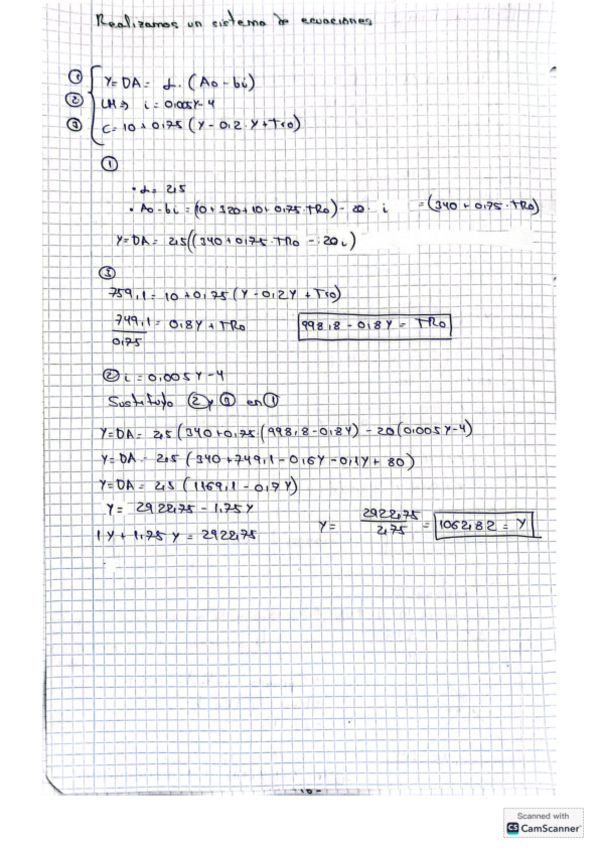 Realizamos un sistema de ecuaciones
① Y=DA= α. (Ao-bi)
② LM⇒ i=0.005Y-4
③ C=10+0,75(Y-0,2.Y+Tro)
①
• α= 2,5
• Ao-bi=(10+320+10+0,75.TRo)-20. i =(340+0,75.TRo)
Y=DA= 2,5((340+0,75.TRo - 20i)
③
759,1=10+0,75(Y-0,2Y+Tro)
749,1/0,75 = 0,8Y+TRo 998,8-0,8Y= TRo
② i=0,005Y-4
Sustituyo ② y ③ en ①
Y=DA= 2,5(340+0,75(998,8-0,8Y)-20(0,005Y-4)
Y=DA= 2,5(340+749,1-0,6Y-0,1Y+80)
Y=DA= 2,5(1169,1-0,7Y)
Y= 2922,75-1,75Y
1Y+1,75Y=2922,75 Y= 2922,75/2,75 = 1062,82=Y
-10-
Scanned with
CS CamScanner